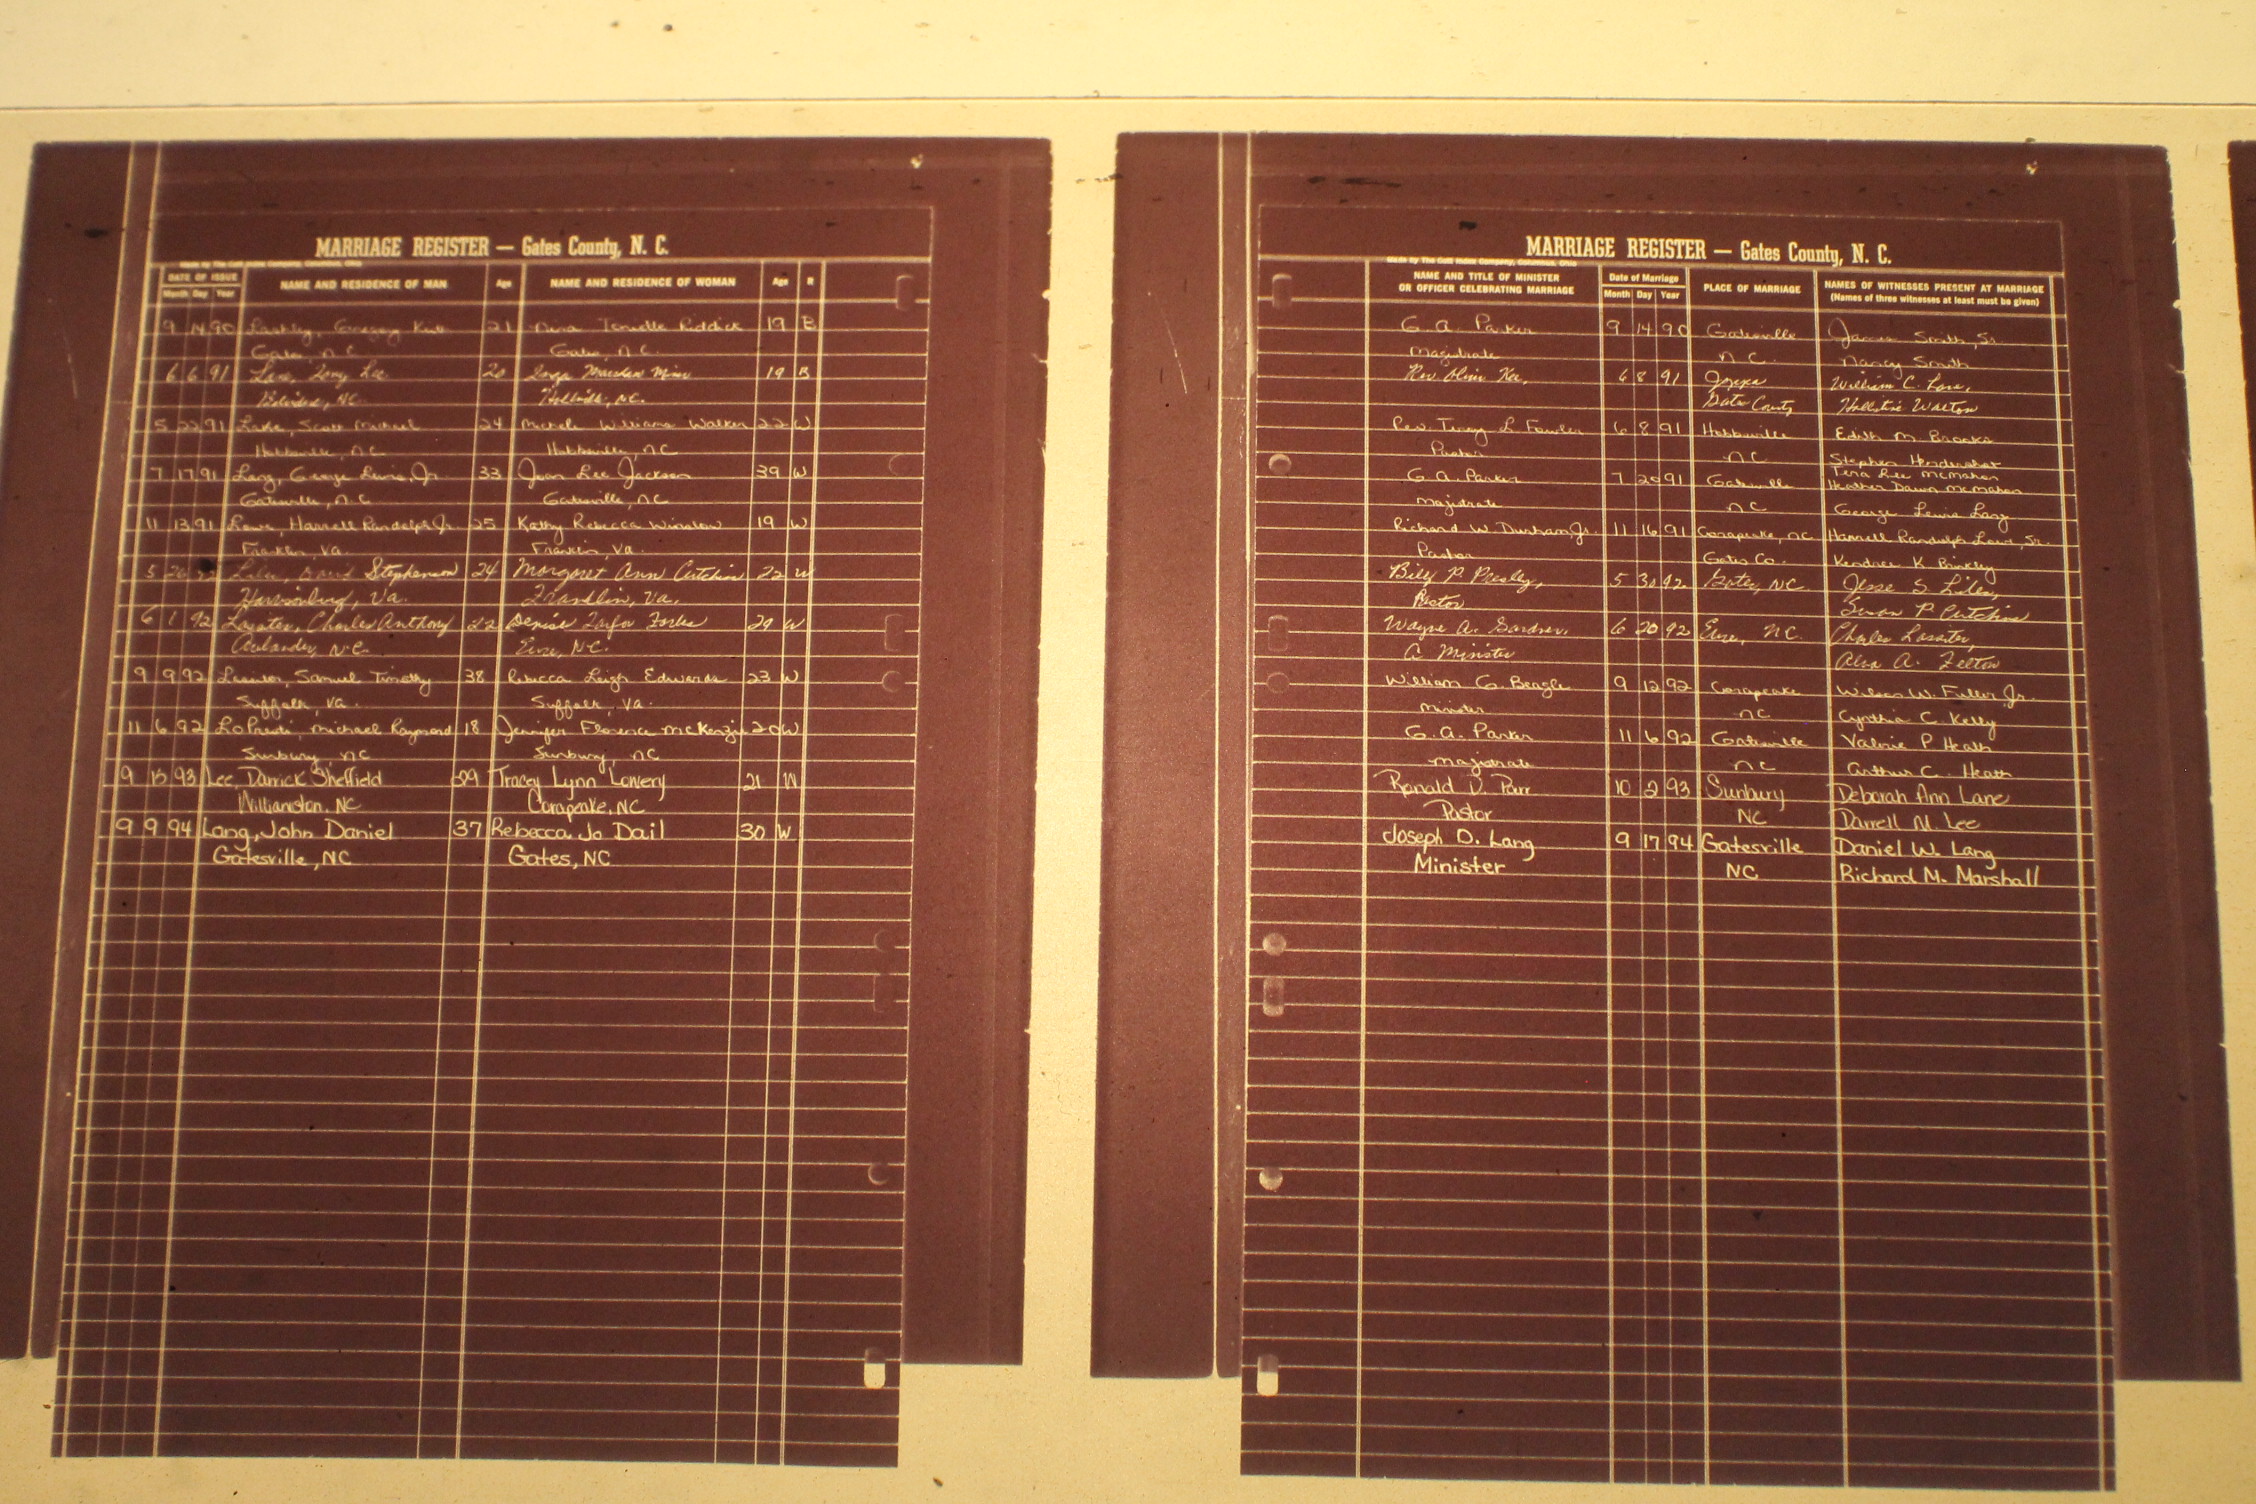 MARRIAGE REGISTER — Gates County, N. C.
Made by The Cott Index Company, Columbus, Ohio
DATE OF ISSUE
Month Day Year
NAME AND RESIDENCE OF MAN
Age
NAME AND RESIDENCE OF WOMAN
Age
R
9 14 90 Lashley, Gregory 21 Tenielle Riddick 19 B
Gates, N C Gates, N.C.
6 6 91 Lane, Tony Lee 20 19 B
Belvidere, NC. Hobbsville, NC.
5 22 91 Lake, Scott Michael 24 Michele Williams Walker 22 W
Hobbsville, NC Hobbsville, NC
7 17 91 Lang, George Lewis, Jr 33 Joan Lee Jackson 39 W
Gatesville, N.C Gatesville, NC
11 13 91 Lowe, Harrell Randolph Jr. 25 Kathy Rebecca Winslow 19 W
Franklin, Va. Franklin, Va.
5 26 92 Liles, David Stephenson 24 Margaret Ann Cutchin 22 W
Harrisonburg, Va. Franklin, Va.
6 1 92 Lassiter, Charles Anthony 22 Denise Forbes 29 W
Aulander, N.C. Eure, N.C.
9 9 92 Samuel Timothy 38 Rebecca Leigh Edwards 23 W
Suffolk, Va. Suffolk, Va.
11 6 92 LoPresti, Michael Raymond 18 Jennifer Florence McKenzie 20 W
Sunbury, NC Sunbury, NC
9 15 93 Lee, Darrick Sheffield 29 Tracey Lynn Lowery 21 W
Williamston, NC Corapeake, NC
9 9 94 Lang, John Daniel 37 Rebecca Jo Dail 30 W
Gatesville, NC Gates, NC
MARRIAGE REGISTER — Gates County, N. C.
Made by The Cott Index Company, Columbus, Ohio
NAME AND TITLE OF MINISTER
OR OFFICER CELEBRATING MARRIAGE
Date of Marriage
Month Day Year
PLACE OF MARRIAGE
NAMES OF WITNESSES PRESENT AT MARRIAGE
(Names of three witnesses at least must be given)
G. A. Parker 9 14 90 Gatesville James Smith, Sr.
Magistrate N C. Nancy Smith
Rev. 6 8 91 Joppa William C.
Gates County Hollistine Walton
Rev. Tracy L Fowler 6 8 91 Hobbsville Edith M. Brooks
Pastor NC Stephen Hendershot
G. A. Parker 7 20 91 Gatesville Tena Lee McMahon
Heather Dawn McMahon
Magistrate NC George Lewis Lang
Richard W. Dunham, Jr. 11 16 91 Corapeake, NC Harrell Randolph Lowe, Sr.
Pastor Gates Co. Kendace K Brinkley
Billy P. Presley, 5 30 92 Gates, NC. Jesse S. Liles,
Pastor Susan P. Cutchin
Wayne A. Gardner, 6 20 92 Eure, NC. Charles Lassiter,
A Minister Alva A. Felton
William G. Beagle 9 12 92 Corapeake Wilson W. Fuller Jr.
Minister NC Cynthia C. Kelly
G. A. Parker 11 6 92 Gatesville Valerie P Heath
Magistrate NC Arthur C. Heath
Ronald D. Parr 10 2 93 Sunbury Deborah Ann Lane
Pastor NC Darrell M. Lee
Joseph D. Lang 9 17 94 Gatesville Daniel W. Lang
Minister NC Richard M. Marshall